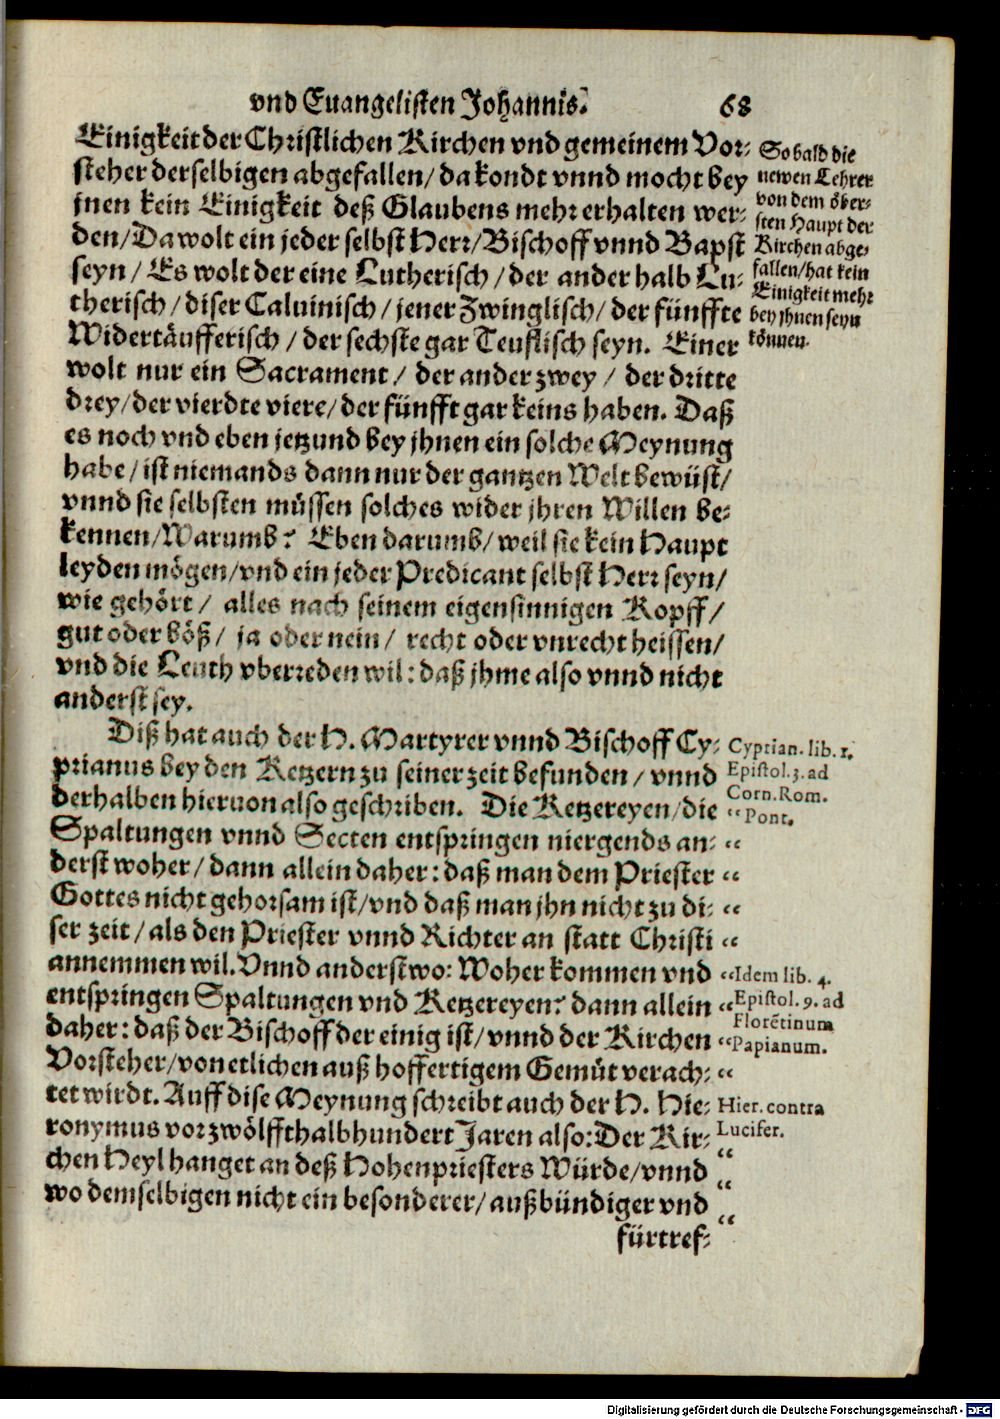 vnd Euangelisten Johannis. 68
Einigkeit der Christlichen Kirchen vnd gemeinem Vor-
steher derselbigen abgefallen/ da kondt vnnd mocht bey
jnen kein Einigkeit deß Glaubens mehr erhalten wer-
den/ Da wolt ein jeder selbst Herr/ Bischoff vnnd Bapst
seyn/ Es wolt der eine Lutherisch/ der ander halb Lu-
therisch/ diser Caluinisch/ jener Zwinglisch/ der fünffte
Widertäufferisch/ der sechste gar Teuflisch seyn. Einer
wolt nur ein Sacrament/ der ander zwey/ der dritte
drey/ der vierdte viere/ der fünfft gar keins haben. Daß
es noch vnd eben jetzund bey jhnen ein solche Meynung
habe/ ist niemands dann nur der gantzen Welt bewüst/
vnnd sie selbsten müssen solches wider jhren Willen be-
kennen/ Warumb? Eben darumb/ weil sie kein Haupt
leyden mögen/ vnd ein jeder Predicant selbst Herr seyn/
wie gehört/ alles nach seinem eigensinnigen Kopff/
gut oder böß/ ja oder nein/ recht oder vnrecht heissen/
vnd die Leuth vberreden wil: daß jhme also vnnd nicht
anderst sey.
Sobald die
newen Lehrer
von dem öber-
sten Haupt der
Kirchen abge-
fallen/ hat kein
Einigkeit mehr
bey jhnen seyn
können.
Diß hat auch der H. Martyrer vnnd Bischoff Cy-
prianus bey den Ketzern zu seiner zeit befunden/ vnnd
derhalben hieruon also geschriben. Die Ketzereyen/ die
Spaltungen vnnd Secten entspringen niergends an-
derst woher/ dann allein daher: daß man dem Priester
Gottes nicht gehorsam ist/ vnd daß man jhn nicht zu di-
ser zeit/ als den Priester vnnd Richter an statt Christi
annemmen wil. Vnnd anderstwo: Woher kommen vnd
entspringen Spaltungen vnd Ketzereyen? dann allein
daher: daß der Bischoff der einig ist/ vnnd der Kirchen
Vorsteher/ von etlichen auß hoffertigem Gemüt verach-
tet wirdt. Auff dise Meynung schreibt auch der H. Hie-
ronymus vor zwölffthalbhundert Jaren also: Der Kir-
chen Heyl hanget an deß Hohenpriesters Würde/ vnnd
wo demselbigen nicht ein besonderer/ außbündiger vnd
fürtref-
Cyprian. lib. 1.
Epistol. 3. ad
Corn. Rom.
“Pont.
“
“
“
“
“Idem lib. 4.
“Epistol. 9. ad
Florētinum
“Papianum.
“
Hier. contra
Lucifer.
“
“
“
Digitalisierung gefördert durch die Deutsche Forschungsgemeinschaft - DFG